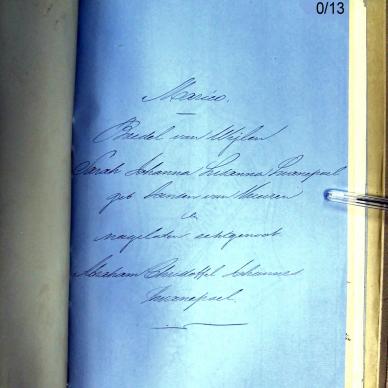 0/13
Marico.
Boedel van Wijlen
Sarah Johanna Susanna Swanepoel
geb Jansen van Vuuren
en
nagelaten echtgenoot
Abraham Christoffel Johannes
Swanepoel.